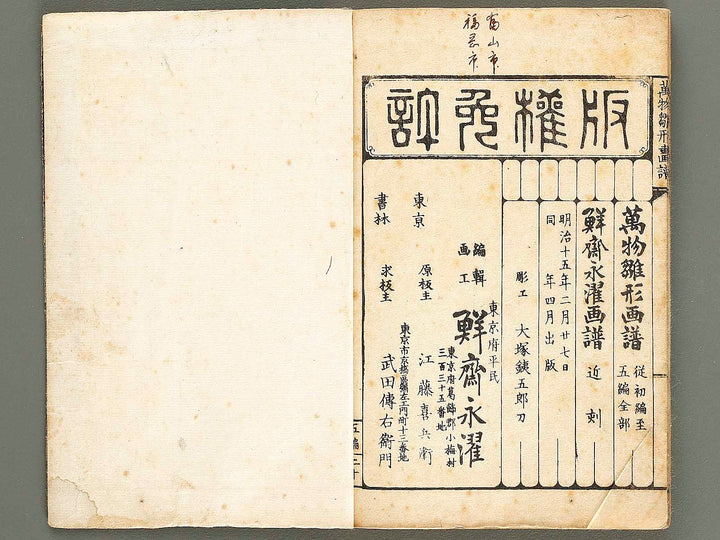 富山市
福岡市
版權免許
萬物雛形画譜
萬物雛形画譜 従初編至五編全部
鮮齋永濯画譜 近刻
明治十五年二月廿七日
同 年四月出版
彫工 大塚鋳五郎刀
東京府平民
編輯
画工 鮮齋永濯
東京府葛飾郡小梅村
三百三十五番地
東京 原板主 江藤喜兵衛
東京市京橋區
町十三番地
書林 求板主 武田傳右衛門
五編 三十